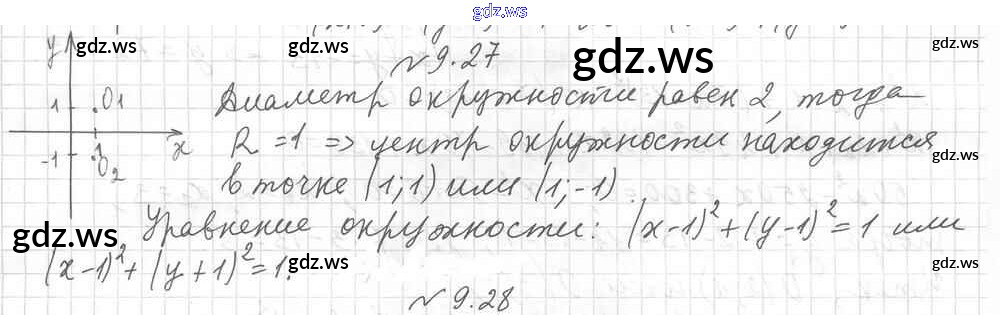 gdz.ws
gdz.ws gdz.ws gdz.ws gdz.ws
№ 9.27
y 1 O1 -1 O2 x
Диаметр окружности равен 2, тогда
R = 1 => центр окружности находится
в точке (1; 1) или (1; -1)
gdz.ws gdz.ws
Уравнение окружности: (x-1)²+(y-1)²=1 или
gdz.ws
(x-1)²+(y+1)²=1.
gdz.ws gdz.ws gdz.ws
№ 9.28